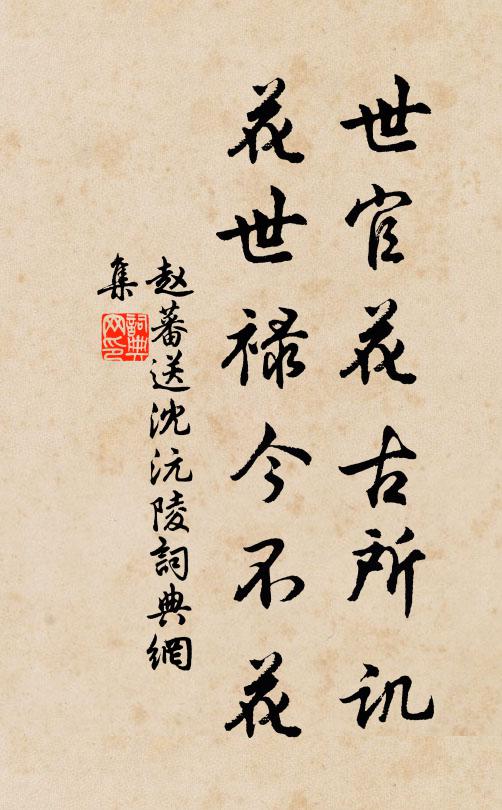 世官花古所讥
花世禄今不花
赵蕃送沈沅陵詞典網
集
詞典
网印